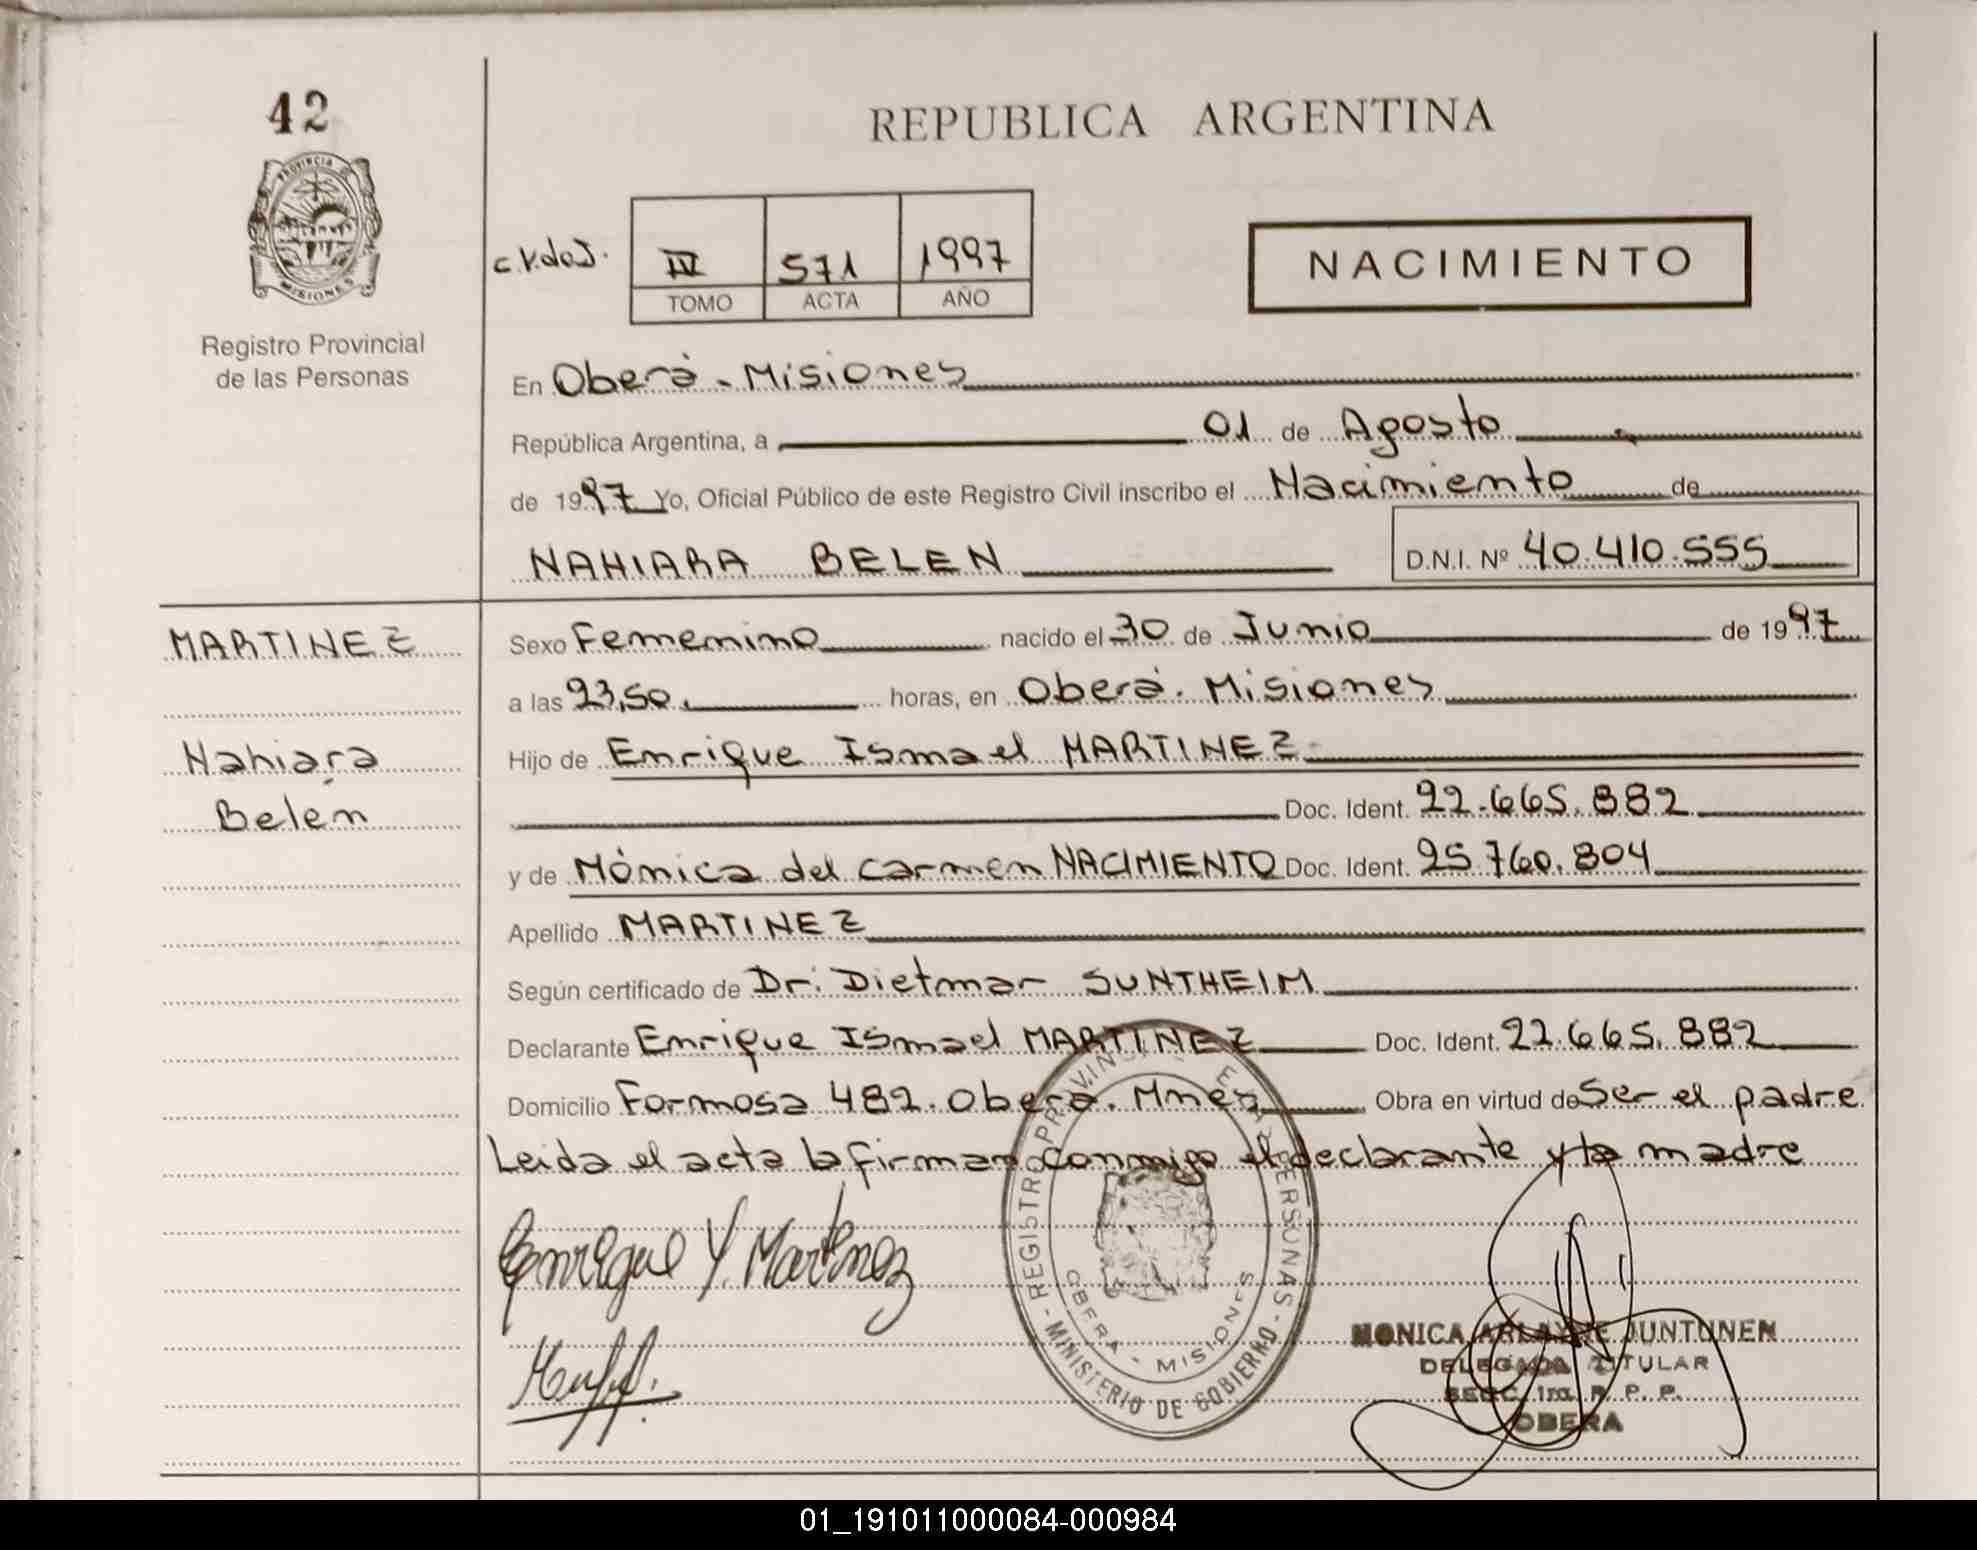 42
REPUBLICA ARGENTINA
PROVINCIA DE
MISIONES
Registro Provincial
de las Personas
c.V.doJ.
IV 571 1997
TOMO ACTA AÑO
NACIMIENTO
En Oberà - Misiones
República Argentina, a 01 de Agosto
de 1997 Yo, Oficial Público de este Registro Civil inscribo el Nacimiento de
NAHIARA BELEN D.N.I. Nº 40.410.555
MARTINEZ
Nahiara
Belen
Sexo Femenino nacido el 30 de Junio de 1997
a las 23,50. horas, en Oberà. Misiones
Hijo de Enrique Ismael MARTINEZ
Doc. Ident. 22.665.882
y de Mónica del Carmen NACIMIENTO Doc. Ident. 25.760.804
Apellido MARTINEZ
Según certificado de Dr. Dietmar SUNTHEIM
Declarante Enrique Ismael MARTINEZ Doc. Ident. 22.665.882
Domicilio Formosa 482. Oberà. Mnes Obra en virtud de Ser el padre
Leida el acta la firman conmigo el declarante y la madre
Enrique Y. Martinez
REGISTRO PROVINCIAL DE LAS PERSONAS
OBERA - MISIONES
MINISTERIO DE GOBIERNO
MONICA ARLAYNE JUNTUNEN
DELEGADA TITULAR
SECC. 1ra. R. P. P.
OBERA
01_191011000084-000984